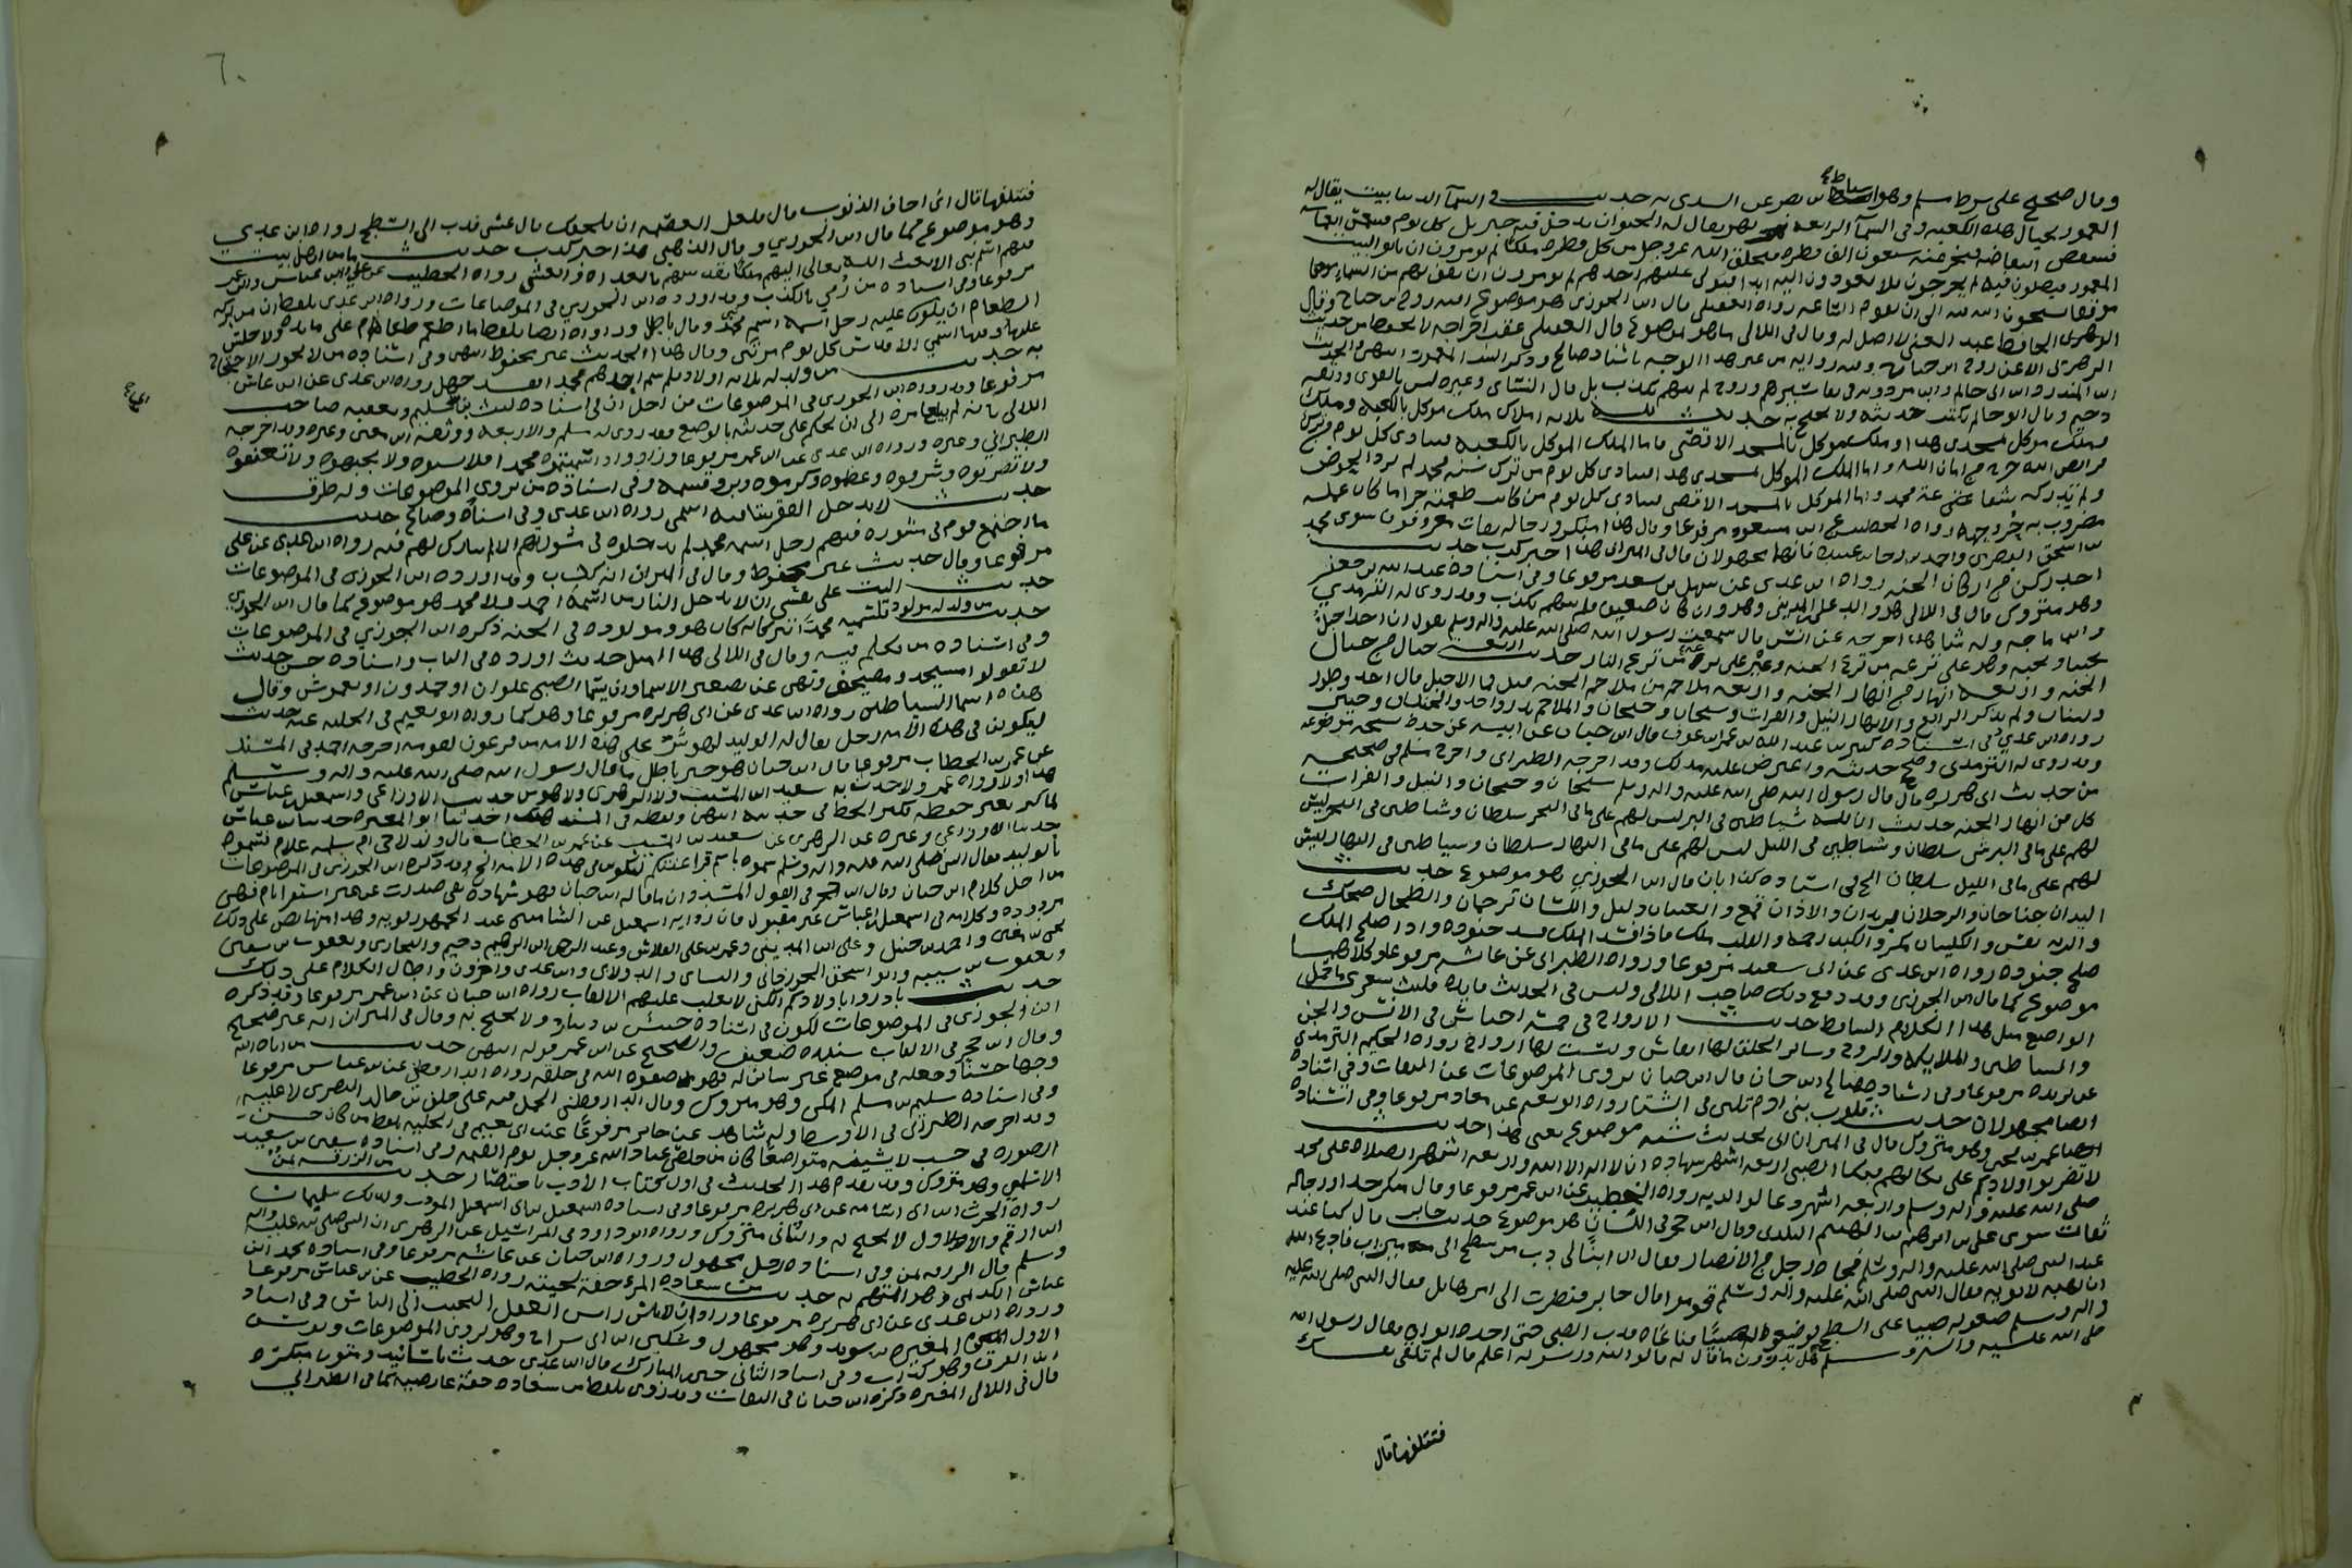 وقال صحيح على شرط مسلم وهو اسباط بن نصر عن السدي به حديث في السمآ الدنيا بيت يقال له
المعمور بحيال هذه الكعبة وفي السمآ الرابعة نهر يقال له الحيوان يدخل فيه جبريل كل يوم
فينتفض انتفاضة فيخر عنه سبعون الف قطرة فيخلق الله عز وجل من كل قطرة ملكا ثم يومرون ان ياتوا البيت
المعمور فيصلون فيه ثم يخرجون فلا يعودون اليه ابدا فيولى عليهم احدهم ثم يومر ان يقف بهم من السماء موقفا
يسبحون الله فيه الى ان تقوم الساعة رواه العقيلي قال ابن الجوزي هو موضوع افته روح بن جناح وقال
الحافظ عبد الغني لا اصل له وقال في اللالي ما هو بموضوع قال العقيلي عقب اخراجه لا يحفظ من حديث
الزهري الا عن روح بن جناح
ابن المنذر وابن ابي حاتم وابن مردويه في تفاسيرهم وروح لم يتهم بكذب بل قال النسائي وغيره ليس بالقوي ووثقه
دحيم وقال ابو حاتم يكتب حديثه ولا يحتج به حديث لله ثلاثة املاك ملك موكل بالكعبة وملك
موكل بمسجدي هذا وملك موكل بالمسجد الاقصى فاما الملك الموكل بالكعبة فينادي كل يوم من ترك
فرايض الله خرج من امان الله واما الملك الموكل بمسجدي هذا فينادي كل يوم من ترك سنة محمد لم يرد الحوض
ولم تدركه شفاعة محمد واما الموكل بالمسجد الاقصى فينادي كل يوم من كانت طعمته حراما كان عمله
مضروب به وجهه رواه الخطيب عن ابن مسعود مرفوعا وقال هذا منكر ورجاله ثقات معروفون سوى محمد
بن اسحق البصري واحمد بن رجا بن عبيدة فانهما مجهولان قال في الميزان هذا خبر كذب حديث
احد ركن من اركان الجنة رواه ابن عدي عن سهل بن سعد مرفوعا وفي اسناده عبد الله بن جعفر
وهو متروك قال في اللالي هو والد علي المديني وهو وان كان ضعيفا فلم يتهم بكذب وقد روى له الترمذي
وابن ماجه وله شاهد اخرجه عن انس قال سمعت رسول الله صلى الله عليه واله وسلم يقول ان احدا جبل
يحبنا ونحبه وهو على ترعة من ترع الجنة وعير على ترعة من ترع النار حديث اربعة جبال من جبال
الجنة واربعة انهار من انهار الجنة واربعة ملاحم من ملاحم الجنة قيل فما الاجبل قال احد وطور
ولبنان ولم يذكر الرابع والانهار النيل والفرات وسيحان وجيحان والملاحم بدر واحد والخندق وحنين
رواه ابن عدي وفي اسناده كثير بن عبد الله بن عمرو بن عوف قال ابن حبان عن ابيه عن جده نسخة موضوعة
وقد روى له الترمذي وصحح حديثه واعترض عليه بذلك وقد اخرجه الطبراني واخرج مسلم في صحيحه
من حديث ابي هريرة قال قال رسول الله صلى الله عليه واله وسلم سيحان وجيحان والنيل والفرات
كل من انهار الجنة حديث ان لله شياطين في البر ليس لهم على ما في البحر سلطان وشياطين في البحر ليس
لهم على ما في البر من سلطان وشياطين في الليل ليس لهم على ما في النهار سلطان وشياطين في النهار ليس
لهم على ما في الليل سلطان الخ في اسناده كذابان قال ابن الجوزي هو موضوع حديث
اليدان جناحان والرجلان بريدان والاذان قمع والعينان دليل واللسان ترجمان والطحال ضحك
والرية نفس والكليتان مكر والكبد رحمة والقلب ملك فاذا فسد الملك فسد جنوده واذا صلح الملك
صلح جنوده رواه ابن عدي عن ابي سعيد مرفوعا ورواه الطبراني عن عائشة مرفوعا وكلاهما
موضوع كما قال ابن الجوزي وقد دفع ذلك صاحب اللالي وليس في الحديث فايدة فليت شعري ما حمل
الواضع مثل هذا الكلام الساقط حديث الارواح في خمسة اجناس في الانس والجن
والشياطين والملايكة والروح وسائر الخلق لها انفاس وليست لها ارواح رواه الحكيم الترمذي
عن بريدة مرفوعا وفي اسناده صالح بن حبان قال ابن حبان يروي الموضوعات عن الثقات وفي اسناده
ايضا مجهولان حديث قلوب بني ادم تلين في الشتا رواه ابو نعيم عن معاذ مرفوعا وفي اسناده
عمر بن يحيى وهو متروك قال في الميزان اتى بحديث شبه موضوع يعني هذا حديث
لا تضربوا اولادكم على بكائهم فبكا الصبي اربعة اشهر شهادة ان لا اله الا الله واربعة اشهر الصلاة على محمد
صلى الله عليه واله وسلم واربعة اشهر دعا لوالديه رواه الخطيب عن ابن عمر مرفوعا وقال منكر جدا ورجاله
ثقات سوى علي بن ابراهيم بن الهيثم البلدي وقال ابن حجر في اللسان هو موضوع حديث جابر قال كنا عند
عند النبي صلى الله عليه واله وسلم فجاه رجل من الانصار فقال ان ابنا لي دب من سطح الى ميزاب فادع الله
ان يهبه لابويه فقال النبي صلى الله عليه واله وسلم قوموا قال جابر فنظرت الى امر هايل فقال النبي صلى الله عليه
واله وسلم ضعوا له صبيا على السطح فوضعوا له صبيا فناغاه فدب الصبي حتى اخذه ابواه فقال رسول الله
صلى الله عليه واله وسلم هل تدرون ما قال له قالوا الله ورسوله اعلم قال لم تلقي نفسك
فتتلفها قال
٦٠
فتتلفها قال اني اخاف الذنوب قال فلعل العصمة ان تلحقك قال عسى فدب الى السطح رواه ابن عدي
وهو موضوع كما قال ابن الجوزي وقال الذهبي هذا خبر كذب حديث ما من اهل بيت
فيهم اسم نبي الا بعث الله تعالى اليهم ملكا يقدسهم بالغداة والعشي رواه الخطيب عن علي وابن عباس وابن عمر
مرفوعا وفي اسناده من رمي بالكذب وقد اورده ابن الجوزي في الموضوعات ورواه ابن عدي بلفظ ان من بركة
الطعام ان يكون عليه رجل اسمه اسم نبي وقال باطل ورواه ايضا بلفظ ما اطعم طعام على مائدة ولا جلس
عليها وفيها اسمي الا قدسوا كل يوم مرتين وقال هذا الحديث غير محفوظ انتهى وفي اسناده من لا يجوز الاحتجاج
به حديث من ولد له ثلاثة اولاد فلم يسم احدهم محمدا فقد جهل رواه ابن عدي عن ابن عباس
مرفوعا وقد رواه ابن الجوزي في الموضوعات من اجل ان في اسناده ليث بن ابي سليم وتعقبه صاحب
اللالي بانه لم يبلغ امره الى ان يحكم على حديثه بالوضع فقد روى له مسلم والاربعة ووثقه ابن معين وغيره وقد اخرجه
الطبراني وغيره ورواه ابن عدي عن ابن عمر مرفوعا وزاد واذا سميتموه محمدا فلا تسبوه ولا تجبهوه ولا تعنفوه
ولا تضربوه وشرفوه وعظموه وكرموه وبروا قسمه وفي اسناده من يروي الموضوعات وله طرق
حديث لا يدخل الفقر بيتا فيه اسمي رواه ابن عدي وفي اسناده وضاع حديث
ما اجتمع قوم في مشورة فيهم رجل اسمه محمد لم يدخلوه في مشورتهم الا لم يبارك لهم فيه رواه ابن عدي عن علي
مرفوعا وقال حديث غير محفوظ وقال في الميزان انه كذب وقد اورده ابن الجوزي في الموضوعات
حديث اليت على نفسي ان لا يدخل النار من اسمه احمد ولا محمد هو موضوع كما قال ابن الجوزي
حديث من ولد له مولود فسميه محمدا تبركا به كان هو ومولوده في الجنة ذكره ابن الجوزي في الموضوعات
وفي اسناده من تكلم فيه وقال في اللالي هذا امثل حديث اورده في الباب واسناده حسن حديث
لا تقولوا مسيجد ومصيحف ونهى عن تصغير الاسما وان يسمى الصبي علوان او حمدون او يعموش وقال
هذه اسما الشياطين رواه ابن عدي عن ابي هريرة مرفوعا وهو كما رواه ابو نعيم في الحلية عنه حديث
ليكونن في هذه الامة رجل يقال له الوليد لهو شر على هذه الامة من فرعون لقومه اخرجه احمد في المسند
عن عمر بن الخطاب مرفوعا قال ابن حبان هو خبر باطل ما قال رسول الله صلى الله عليه واله وسلم
هذا ولا رواه عمر ولا حدث به سعيد بن المسيب ولا الزهري ولا هو من حديث الاوزاعي واسمعيل بن عياش
لما كبر تغير حفظه فكثر الخطا في حديثه انتهى ولفظه في المسند هكذا حدثنا ابو المغيرة حدثنا ابن عياش
حدثنا الاوزاعي وغيره عن الزهري عن سعيد بن المسيب عن عمر بن الخطاب قال ولد لاخي ام سلمة غلام فسموه
بالوليد فقال النبي صلى الله عليه واله وسلم سموه باسم فراعنتكم ليكونن في هذه الامة الخ وقد ذكره ابن الجوزي في الموضوعات
من اجل كلام ابن حبان وقال ابن حجر في القول المسدد ان ما قاله ابن حبان فهو شهادة نفي صدرت عن غير استقرا تام فهي
مردودة وكلامه في اسمعيل بن عياش غير مقبول فان رواية اسمعيل عن الشاميين عند الجمهور قوية وهذا منها نص على ذلك
يحيى بن معين واحمد بن حنبل وعلي ابن المديني وعمرو بن علي الفلاس وعبد الرحمن بن ابراهيم دحيم والبخاري ويعقوب بن سفين
ويعقوب بن شيبة وابو اسحق الجوزجاني والنسائي والدولابي وابن عدي واخرون واطال الكلام على ذلك
حديث بادروا باولادكم الكنى لا تغلب عليهم الالقاب رواه ابن حبان عن ابن عمر مرفوعا وقد ذكره
ابن الجوزي في الموضوعات لكون في اسناده حبيش بن دينار ولا يحتج به وقال في الميزان انه غير صحيح
وقال ابن حجر في الالقاب سنده ضعيف والصحيح عن ابن عمر قوله انتهى حديث من اتاه الله
وجها حسنا وجعله في موضع غير شائن له فهو من صفوة الله في خلقه رواه الدارقطني عن ابن عباس مرفوعا
وفي اسناده سليم بن مسلم المكي وهو متروك وقال الدارقطني الحمل فيه على خلف بن خالد البصري لا عليه
وقد اخرجه الطبراني في الاوسط وله شاهد عن جابر مرفوعا عند ابي نعيم في الحلية بلفظ من كان حسن
الصورة في حسب لا يشينه متواضعا كان من خلص عباد الله عز وجل يوم القيمة وفي اسناده سفين بن سعيد
الاسلمي وهو متروك وقد تقدم هذا الحديث في اول كتاب الادب باختصار حديث من الزرقة يمن
رواه الحرث ابن ابي اسامة عن ابي هريرة مرفوعا وفي اسناده اسمعيل بن ابي اسمعيل المودب وكذلك سليمان
ابن ارقم والاول لا يحتج به والثاني متروك ورواه ابو داود في المراسيل عن الزهري ان النبي صلى الله عليه واله
وسلم قال الزرقة يمن وفي اسناده رجل مجهول ورواه ابن حبان عن عائشة مرفوعا وفي اسناده محمد ابن
الكديمي وهو المتهم به حديث من سعادة المرء خفة لحيته رواه الخطيب عن ابن عباس مرفوعا
ورواه ابن عدي عن ابي هريرة مرفوعا وزاد ان راس العقل التحبب الى الناس وفي اسناد
الاول المغيرة بن سويد وهو مجهول وسكين ابن ابي سراج وهو يروي الموضوعات
ابن الغرق وهو كذاب وفي اسناد الثاني حسين بن المبارك قال ابن عدي حدث باسانيد ومتون منكرة
قال في اللالي المغيرة ذكره ابن حبان في الثقات وقد روي بلفظ من سعادة خفة عارضيه كما في الطبراني